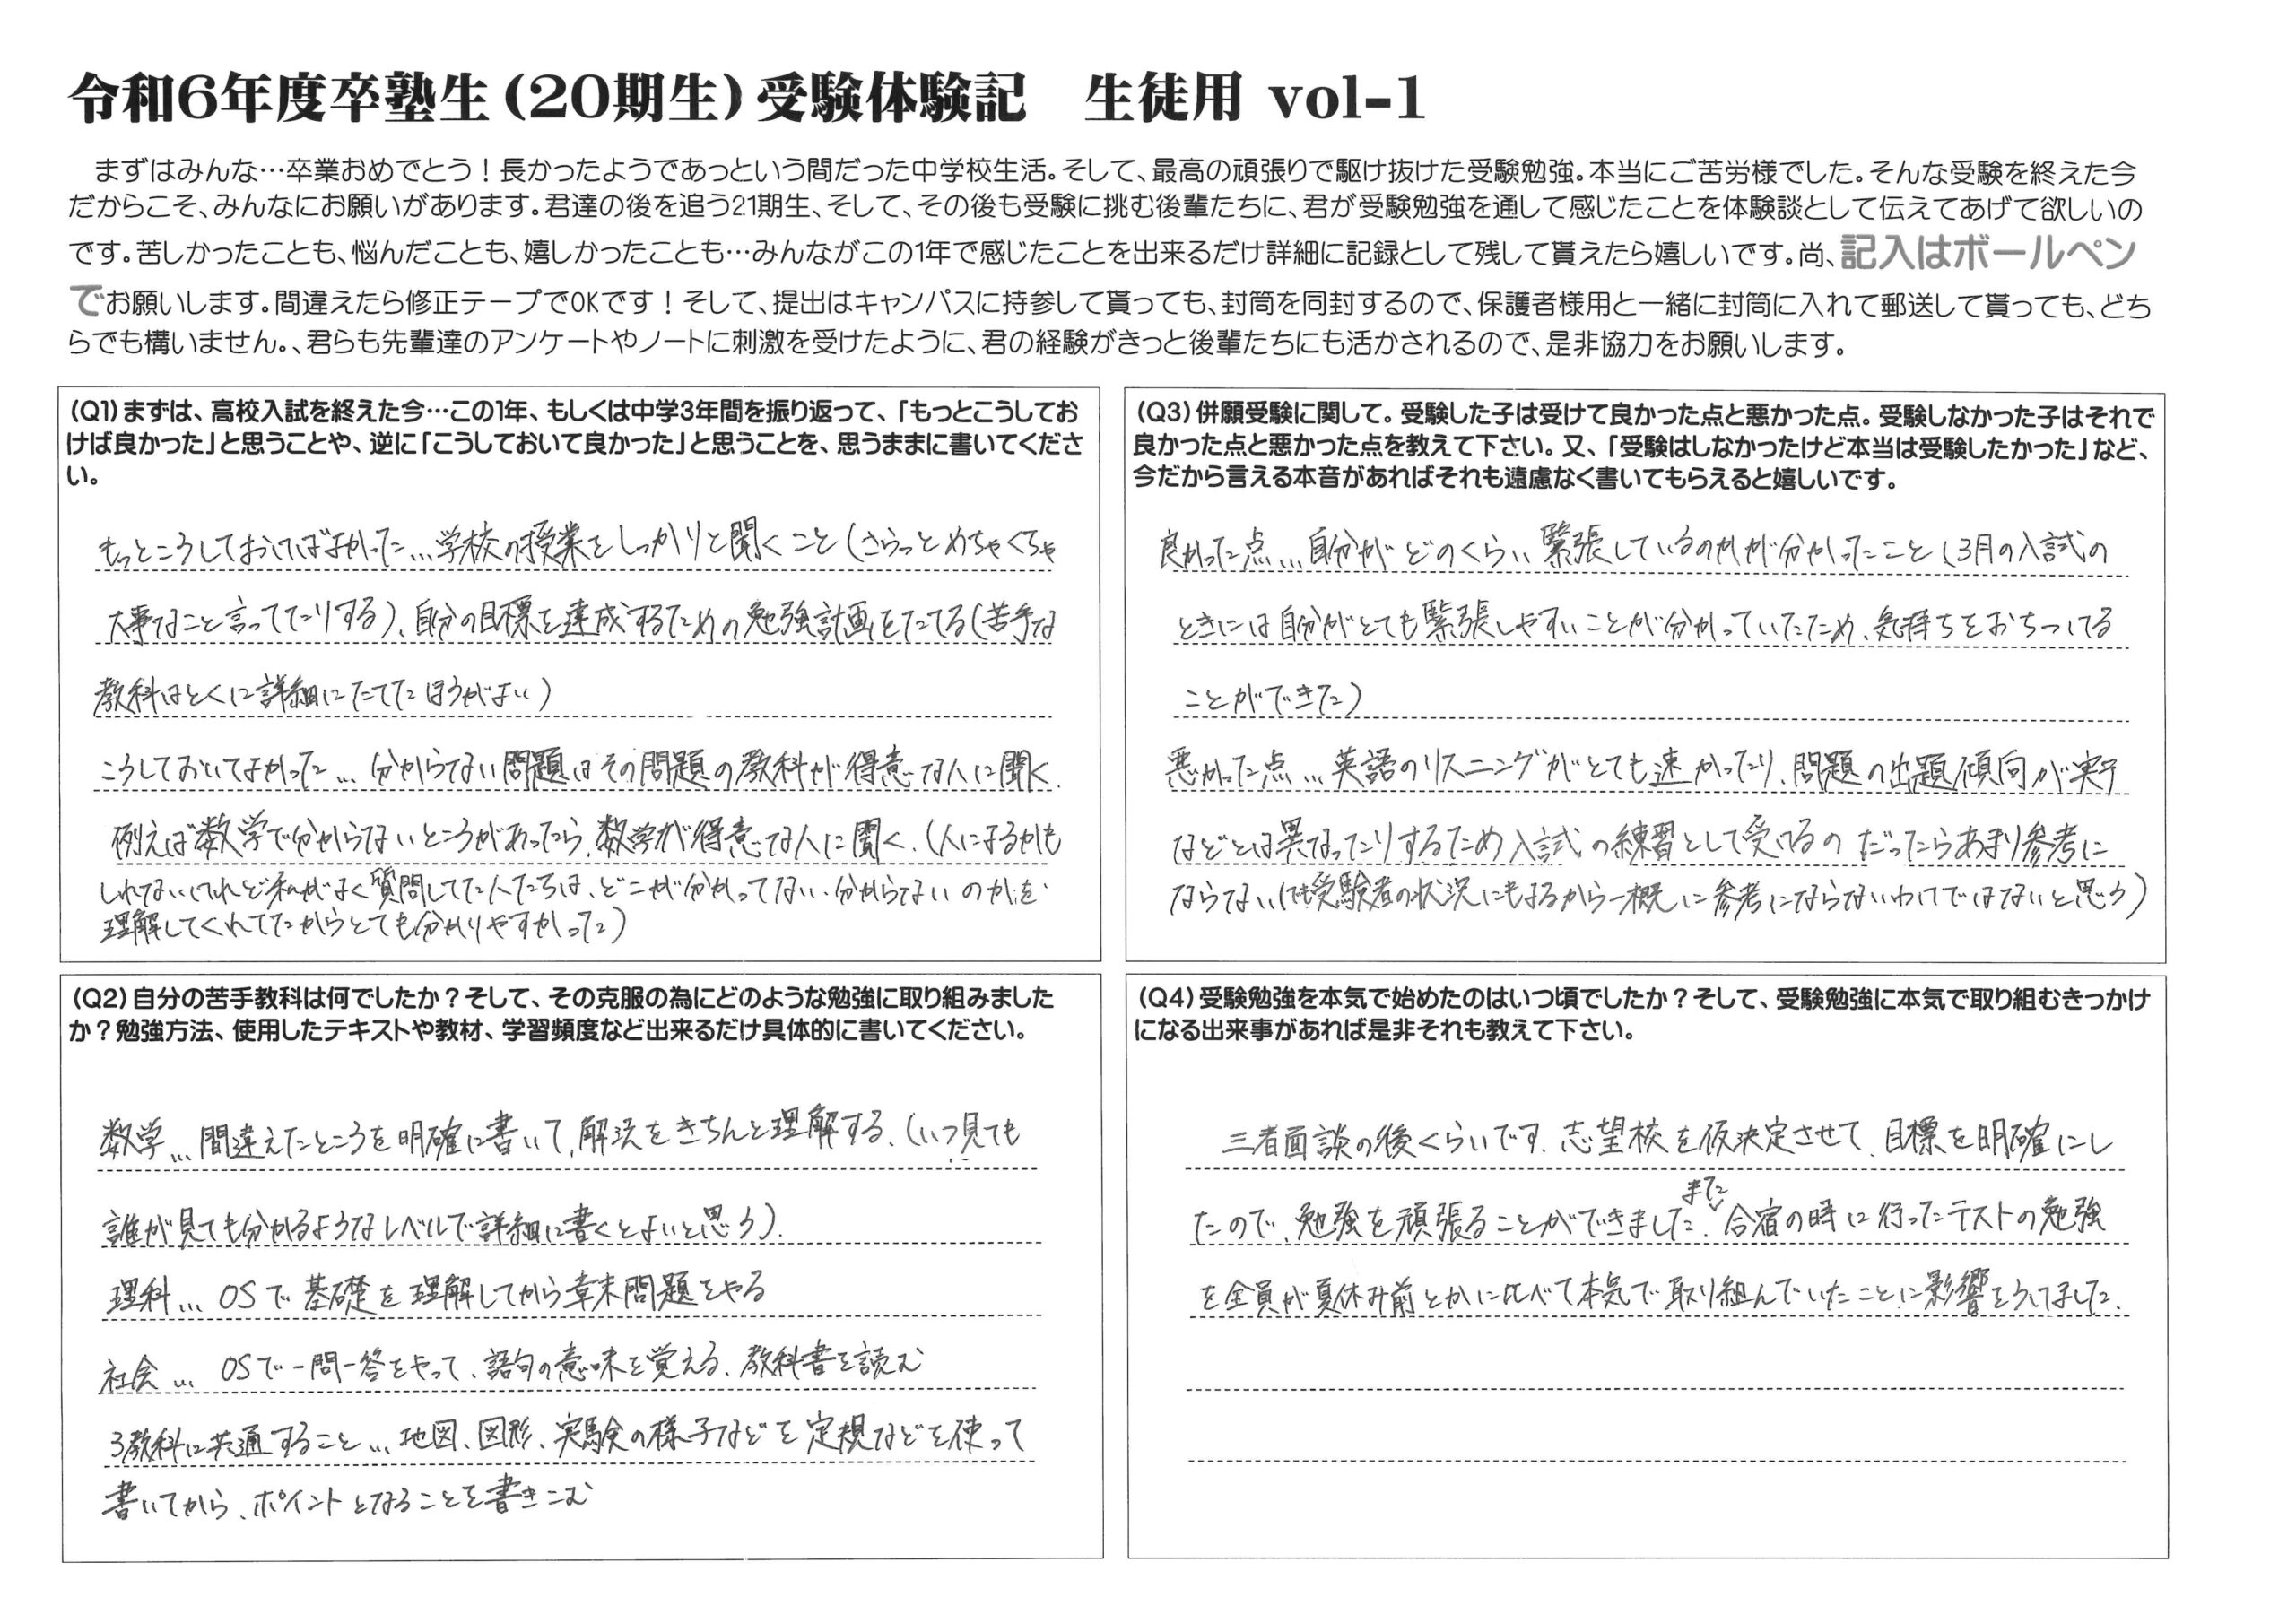 令和6年度卒塾生(20期生)受験体験記　生徒用 vol-1
まずはみんな…卒業おめでとう！長かったようであっという間だった中学校生活。そして、最高の頑張りで駆け抜けた受験勉強。本当にご苦労様でした。そんな受験を終えた今
だからこそ、みんなにお願いがあります。君達の後を追う21期生、そして、その後も受験に挑む後輩たちに、君が受験勉強を通して感じたことを体験談として伝えてあげて欲しいの
です。苦しかったことも、悩んだことも、嬉しかったことも…みんながこの1年で感じたことを出来るだけ詳細に記録として残して貰えたら嬉しいです。尚、記入はボールペン
でお願いします。間違えたら修正テープでOKです！そして、提出はキャンパスに持参して貰っても、封筒を同封するので、保護者様用と一緒に封筒に入れて郵送して貰っても、どち
らでも構いません。、君らも先輩達のアンケートやノートに刺激を受けたように、君の経験がきっと後輩たちにも活かされるので、是非協力をお願いします。
(Q1)まずは、高校入試を終えた今…この1年、もしくは中学3年間を振り返って、「もっとこうしてお
けば良かった」と思うことや、逆に「こうしておいて良かった」と思うことを、思うままに書いてくださ
い。
もっとこうしておけばよかった…学校の授業をしっかりと聞くこと(さらっとめちゃくちゃ
大事なこと言ってたりする)、自分の目標を達成するための勉強計画をたてる(苦手な
教科はとくに詳細にたてたほうがよい)
こうしておいてよかった…分からない問題はその問題の教科が得意な人に聞く、
例えば数学で分からないところがあったら、数学が得意な人に聞く、(人によるかも
しれないけれど私がよく質問してた人たちは、どこが分かってない、分からないのかを
理解してくれてたからとても分かりやすかった)
(Q2)自分の苦手教科は何でしたか？そして、その克服の為にどのような勉強に取り組みました
か？勉強方法、使用したテキストや教材、学習頻度など出来るだけ具体的に書いてください。
数学…間違えたところを明確に書いて、解法をきちんと理解する、(いつ見ても
誰が見ても分かるようなレベルで詳細に書くとよいと思う)、
理科…OSで基礎を理解してから章末問題をやる
社会…OSで一問一答をやって、語句の意味を覚える、教科書を読む
3教科に共通すること…地図、図形、実験の様子などを定規などを使って
書いてから、ポイントとなることを書きこむ
(Q3)併願受験に関して。受験した子は受けて良かった点と悪かった点。受験しなかった子はそれで
良かった点と悪かった点を教えて下さい。又、「受験はしなかったけど本当は受験したかった」など、
今だから言える本音があればそれも遠慮なく書いてもらえると嬉しいです。
良かった点…自分がどのくらい緊張しているのかが分かったこと(3月の入試の
ときには自分がとても緊張しやすいことが分かっていたため、気持ちをおちつける
ことができた)
悪かった点…英語のリスニングがとても速かったり、問題の出題傾向が実テ
などとは異なったりするため入試の練習として受けるのだったらあまり参考に
ならない(でも受験者の状況にもよるから一概に参考にならないわけではないと思う)
(Q4)受験勉強を本気で始めたのはいつ頃でしたか？そして、受験勉強に本気で取り組むきっかけ
になる出来事があれば是非それも教えて下さい。
三者面談の後くらいです、志望校を仮決定させて、目標を明確にし
たので、勉強を頑張ることができました、また合宿の時に行ったテストの勉強
を全員が夏休み前とかに比べて本気で取り組んでいたことに影響をうけました、